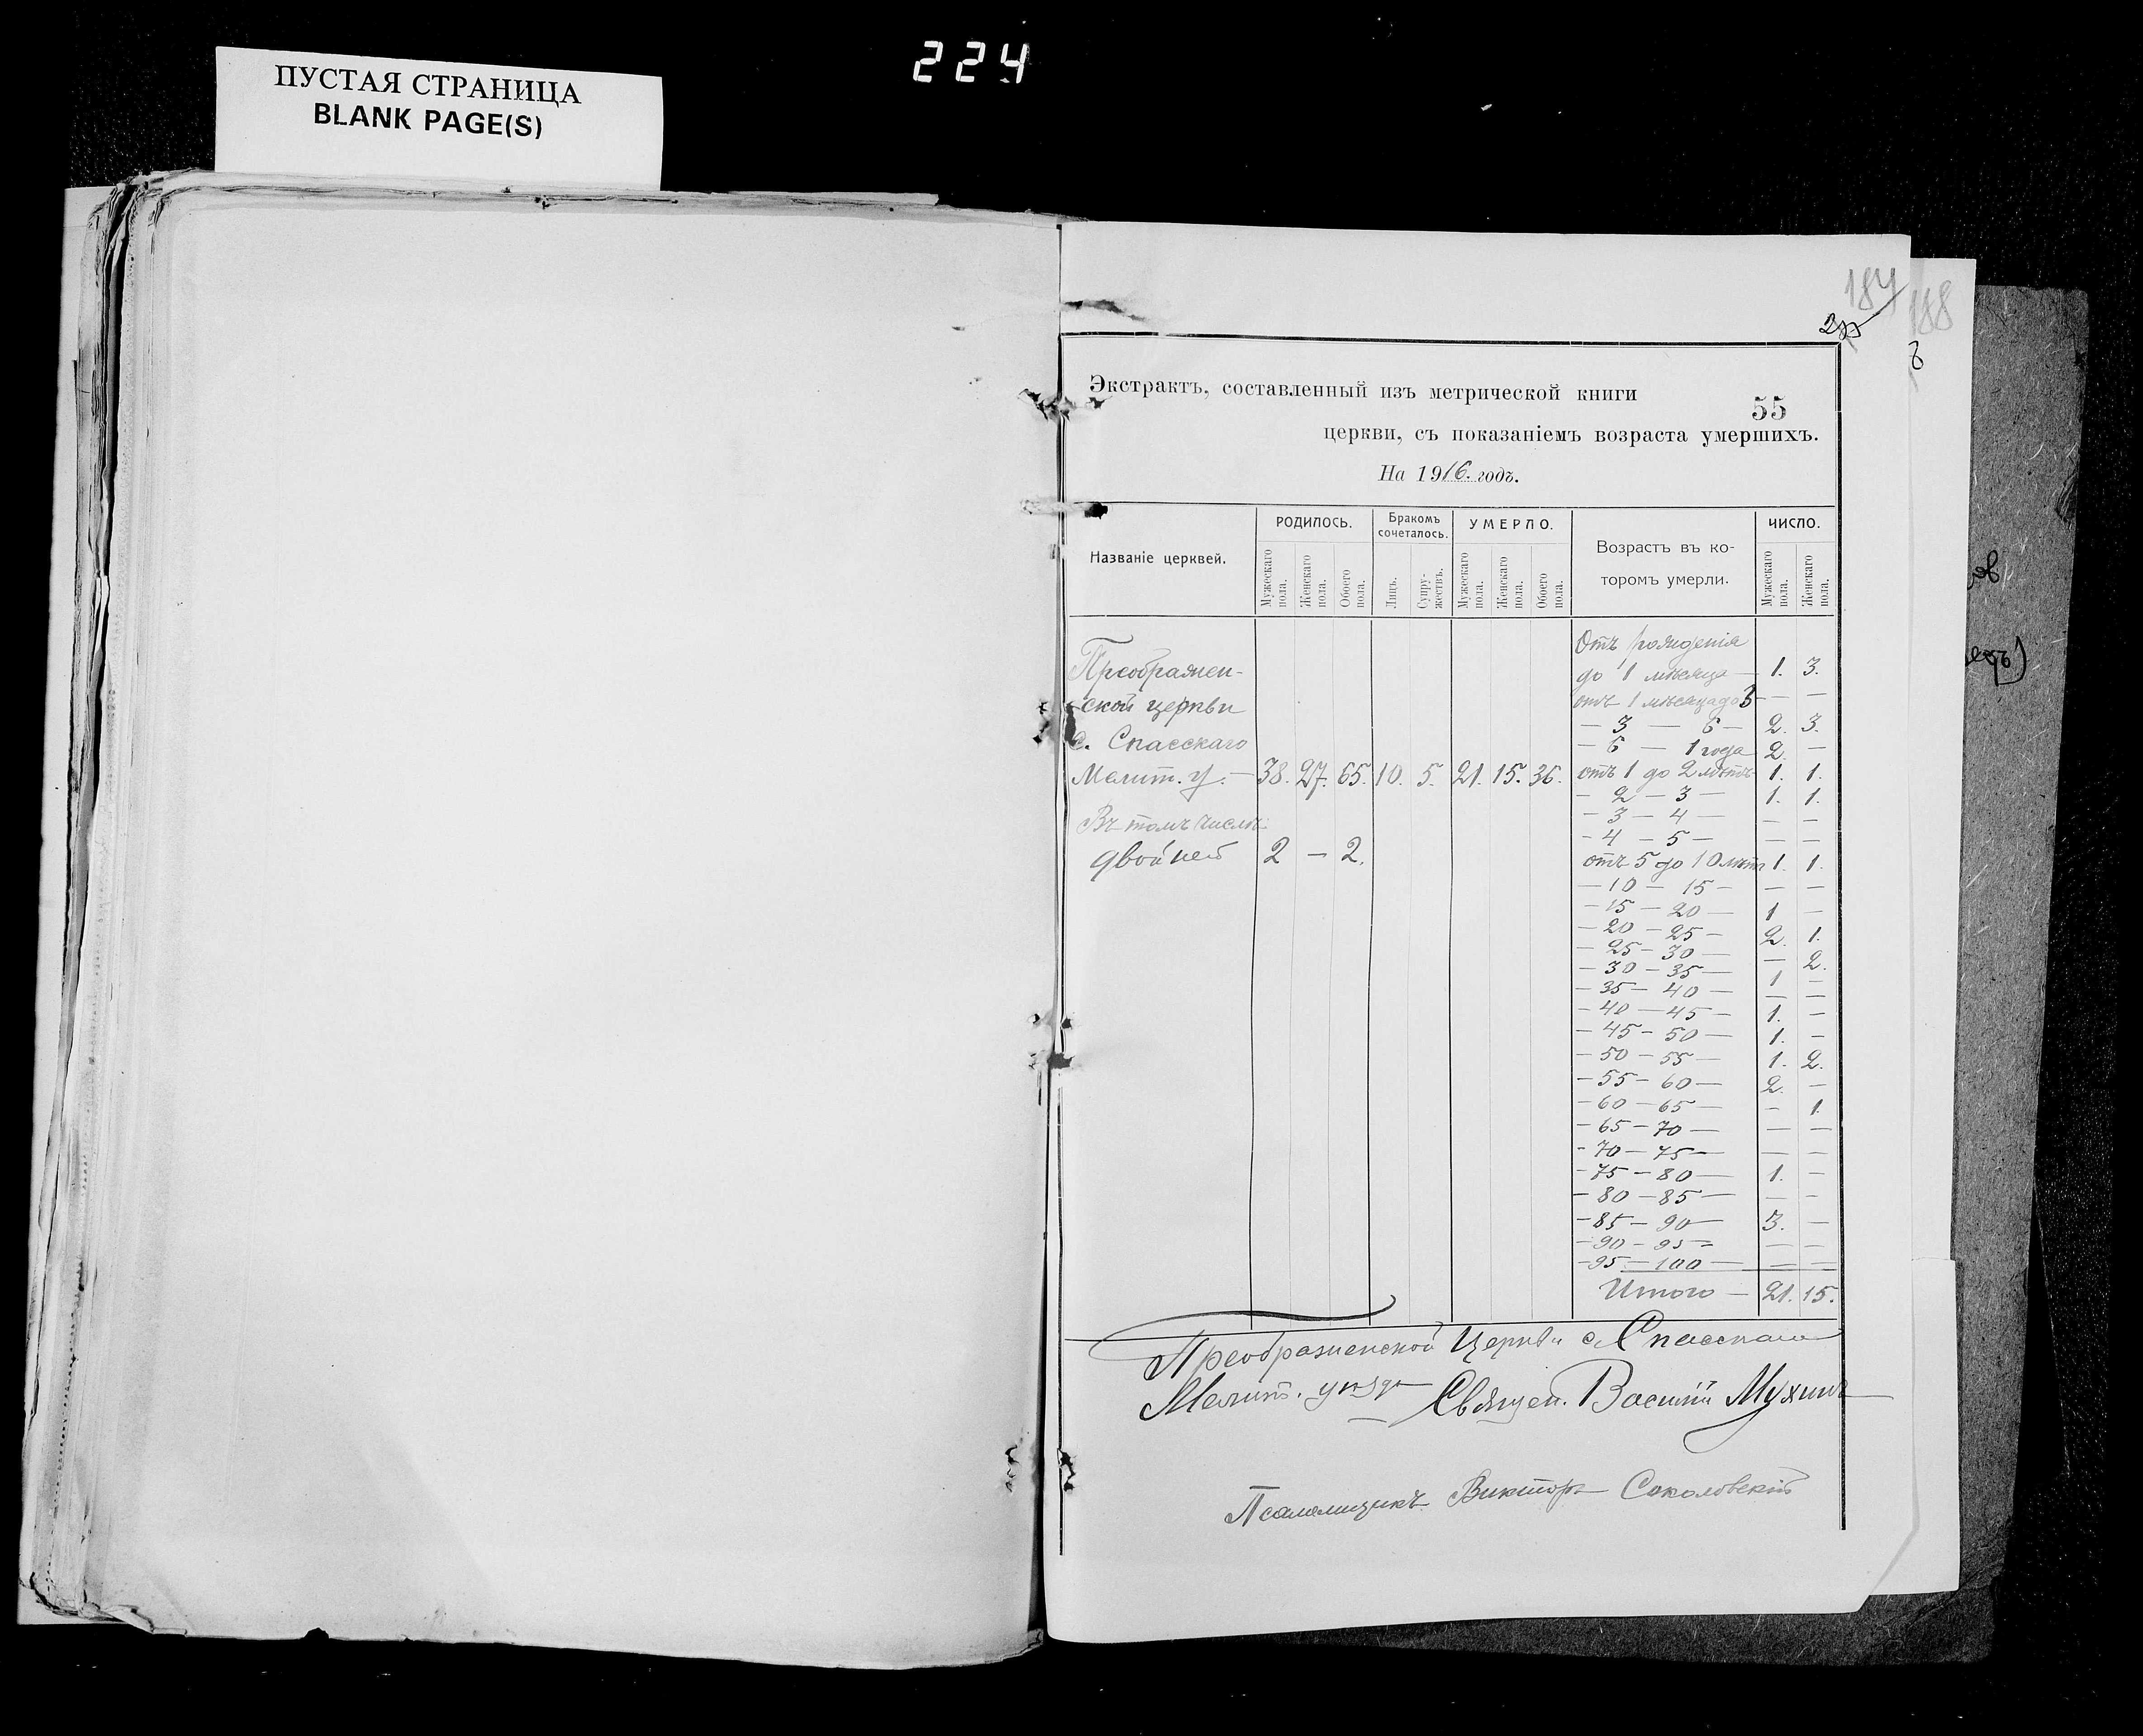 224
ПУСТАЯ СТРАНИЦА
BLANK PAGE(S)
187
188
Экстрактъ, составленный изъ метрической книги
55
церкви, съ показаніемъ возраста умершихъ.
На 1916 годъ.
Названіе церквей. РОДИЛОСЬ. Бракомъ сочеталось. УМЕРЛО. Возрастъ въ ко-торомъ умерли. ЧИСЛО.
Мужескаго пола. Женскаго пола. Обоего пола. Лицъ. Супру-жествъ. Мужескаго пола. Женскаго пола. Обоего пола. Мужескаго пола. Женскаго пола.
Преображен-
ской церкви
с. Спасскаго
Мелит. у. — 38. 27. 65. 10. 5. 21. 15. 36.
Въ томъ числѣ
двойней 2 — 2.
Отъ рожденія
до 1 мѣсяца — 1. 3.
отъ 1 мѣсяца до 3 — —
— 3 — 6 — 2. 3.
— 6 — 1 года 2. —
отъ 1 до 2 лѣтъ 1. 1.
— 2 — 3 — 1. 1.
— 3 — 4 — — —
— 4 — 5 — — —
отъ 5 до 10 лѣтъ 1. 1.
— 10 — 15 — — —
— 15 — 20 — 1 —
— 20 — 25 — 2. 1.
— 25 — 30 — — 2.
— 30 — 35 — 1 —
— 35 — 40 — — —
— 40 — 45 — 1. —
— 45 — 50 — 1. —
— 50 — 55 — 1. 2.
— 55 — 60 — 2. —
— 60 — 65 — — 1.
— 65 — 70 — — —
— 70 — 75 — — —
— 75 — 80 — 1. —
— 80 — 85 — — —
— 85 — 90 — 3. —
— 90 — 95 — — —
— 95 — 100 — — —
Итого — 21. 15.
Преображенской Церкви с. Спасскаго
Мелит. уѣзда Священ. Василій Мухинъ
Псаломщикъ Викторъ Соколовскій